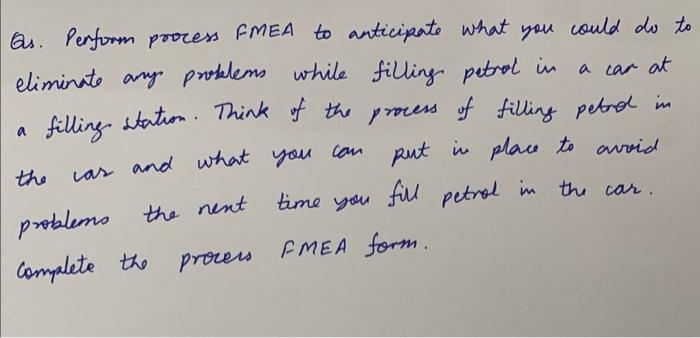 Qs. Perform process FMEA to anticipate what you could do to
eliminate any problems while filling petrol in a car at
a filling station. Think of the process of filling petrol in
the car and what you can put in place to avoid
problems the next time you fill petrol in the car.
Complete the process FMEA form.